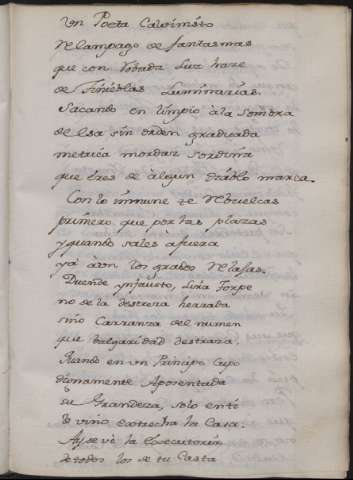 Un Poeta
Relampago de fantasmas
que con Robada Luz hace
de Tinieblas Luminarias.
Sacando en limpio à la sombra
de esa sin orden graduada
metrica mordaz sordina
que eres de algun Diablo marca.
Con lo inmune te Rebuelcas
primero que por las plazas
y quando sales à fuera
ya àon los grados Relajas.
Duende ynfausto, Lira Torpe
no de la destreza herrada
sino Carranza del numen
que bulgaridad destraza.
Quando en un Principe Cupo
Dignamente Aposentada
su Grandeza, solo en ti
le vino estrecha la Casa.
Ay se vè la Executoria
de todos los de tu Casta